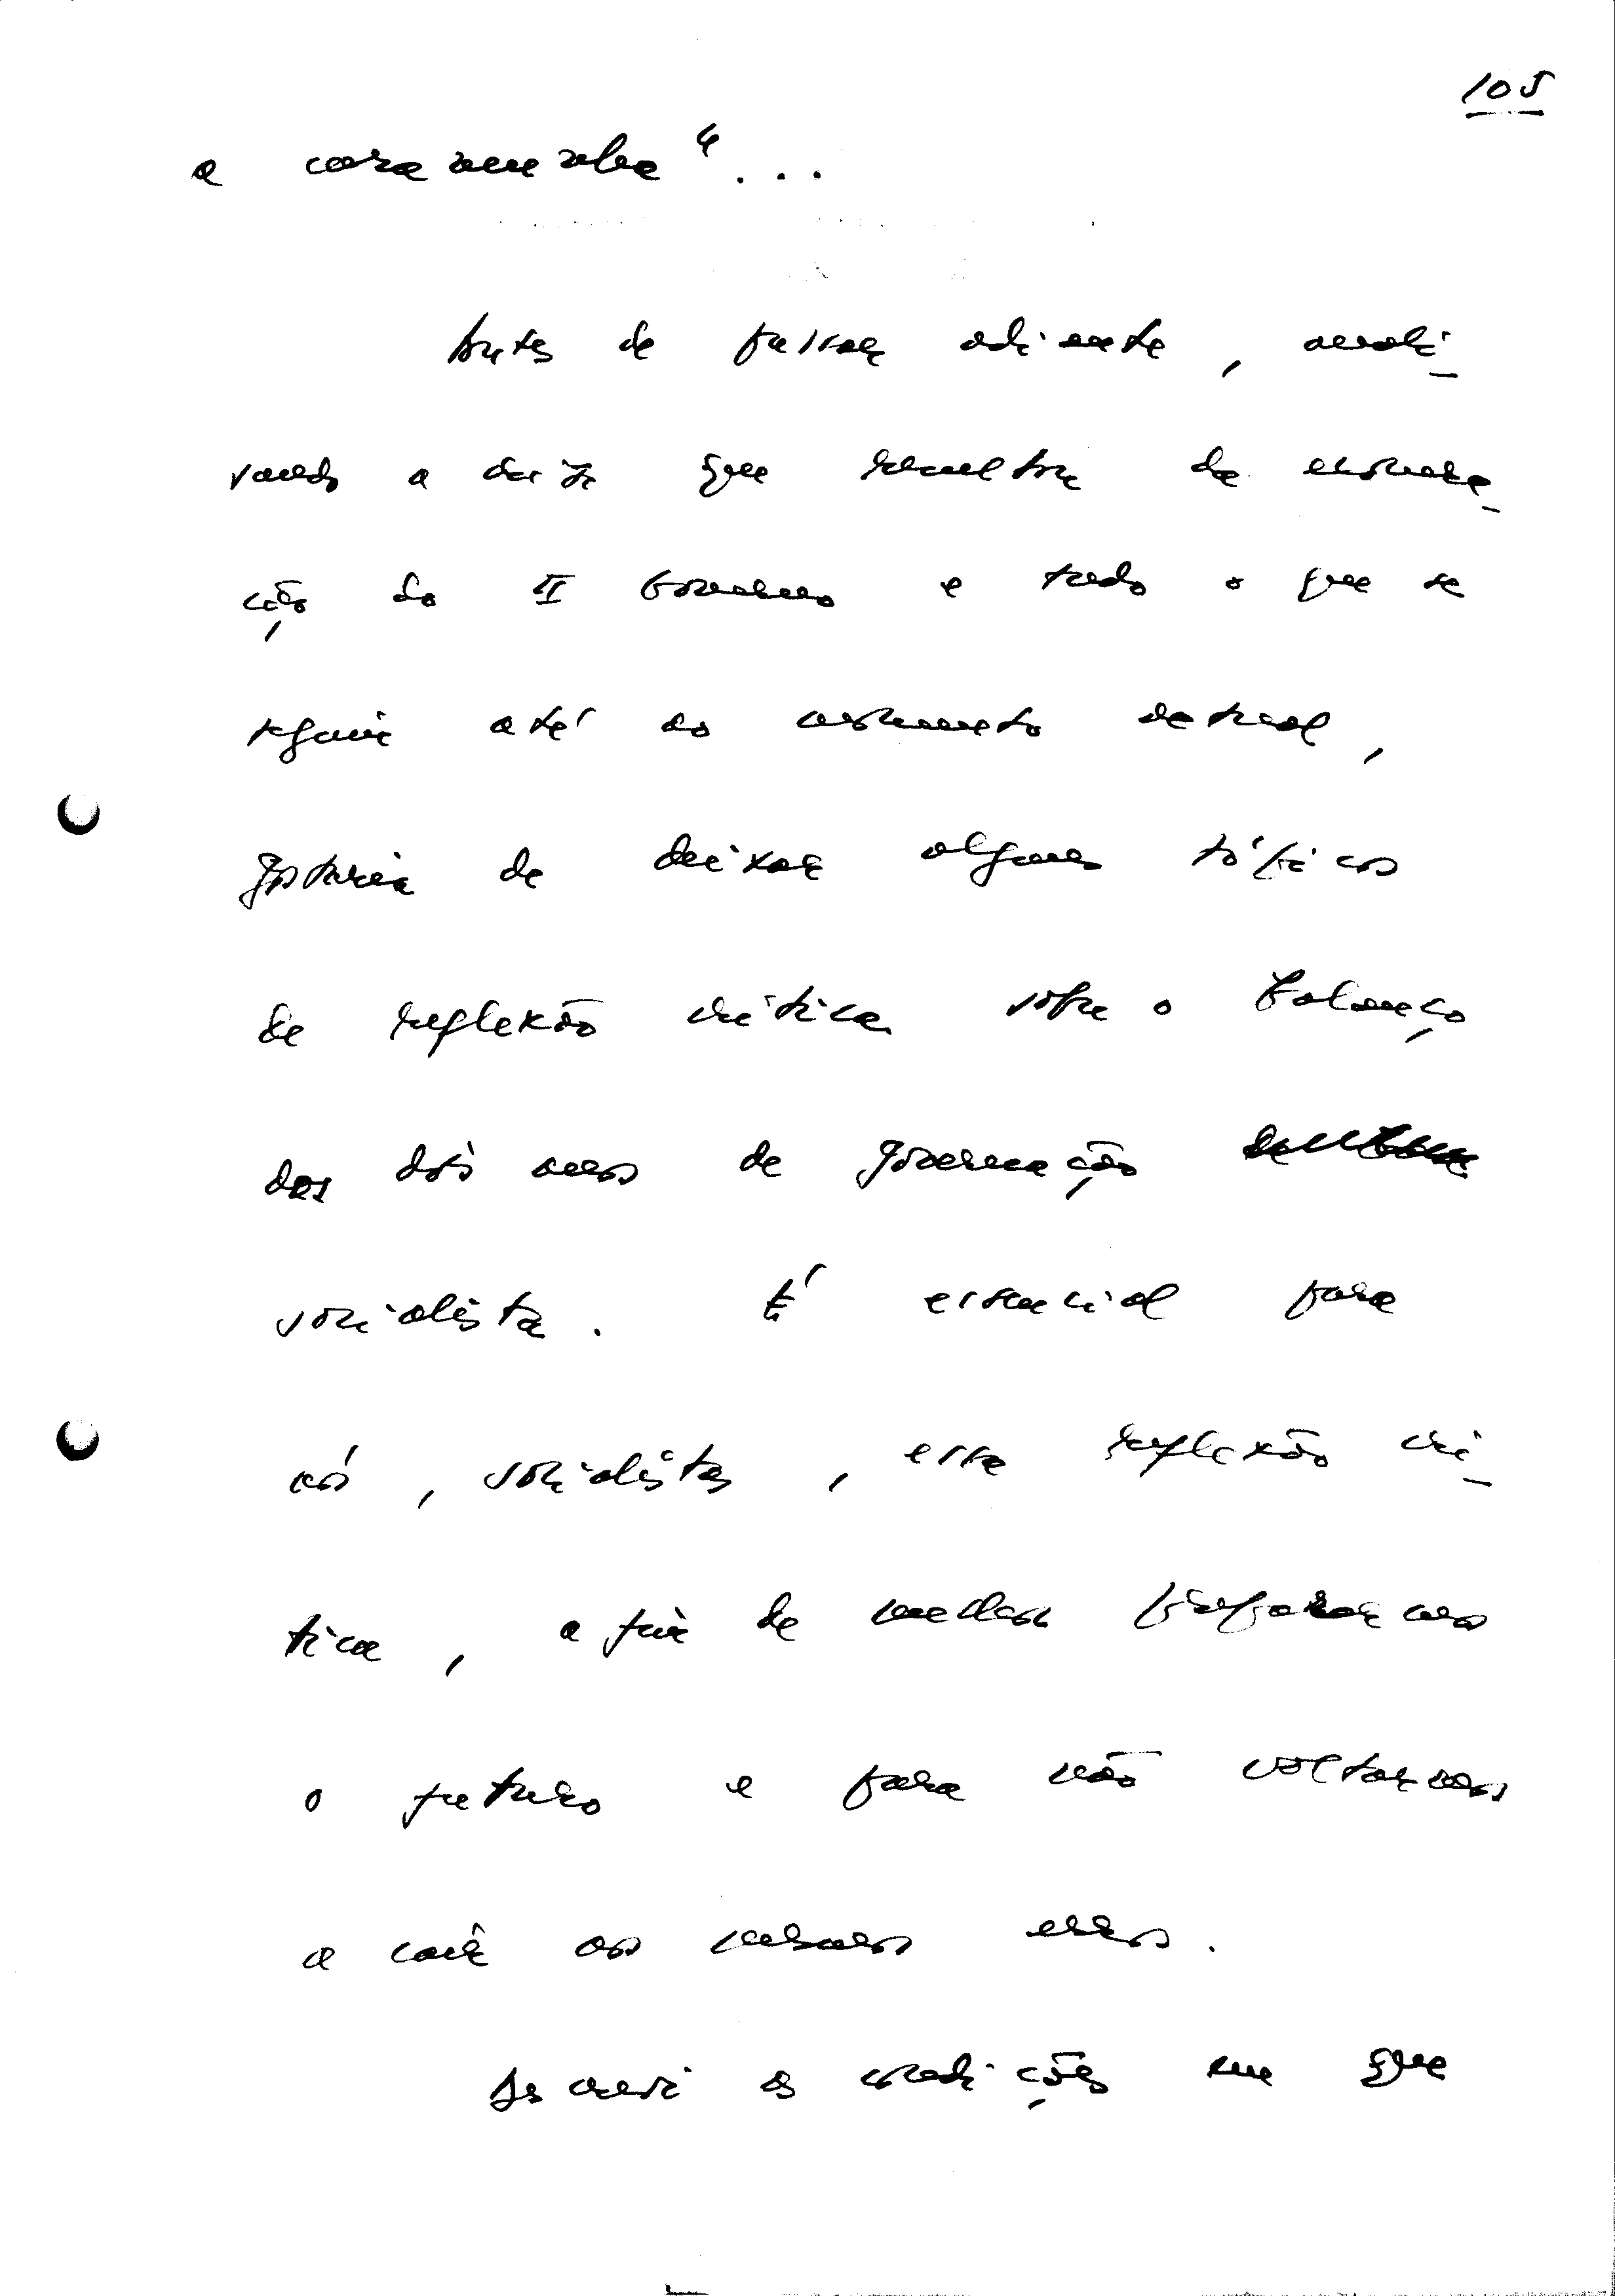 105
a caravela"...
Antes de passar adiante, anali-
sando a crise que resultou da exonera-
ção do II Governo e tudo o que se
seguiu até ao momento actual,
gostaria de deixar alguns tópicos
de reflexão crítica sobre o balanço
dos dois anos de governação
socialista. É essencial para
nós, socialistas, essa reflexão crí-
tica, a fim de melhor prepararmos
o futuro e para não voltarmos
a cair nos mesmos erros.
Descrevi as condições em que